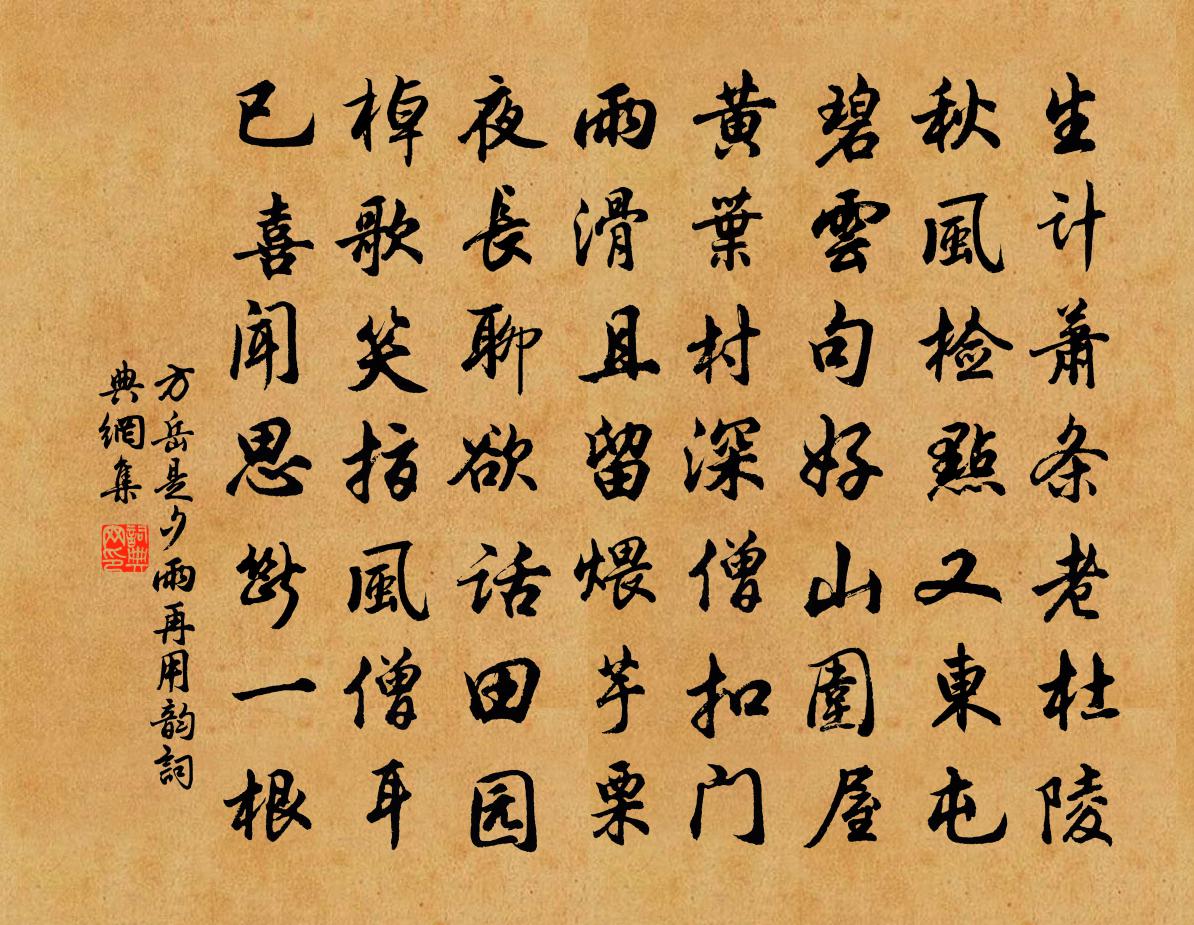 生计萧条老杜陵
秋風检點又東屯
碧雲句好山圍屋
黄葉村深僧扣门
雨滑且留煨芋栗
夜長聊欲话田园
棹歌笑指風僧耳
已喜聞思斷一根
方岳是夕雨再用韵詞
典網集
詞典
网印